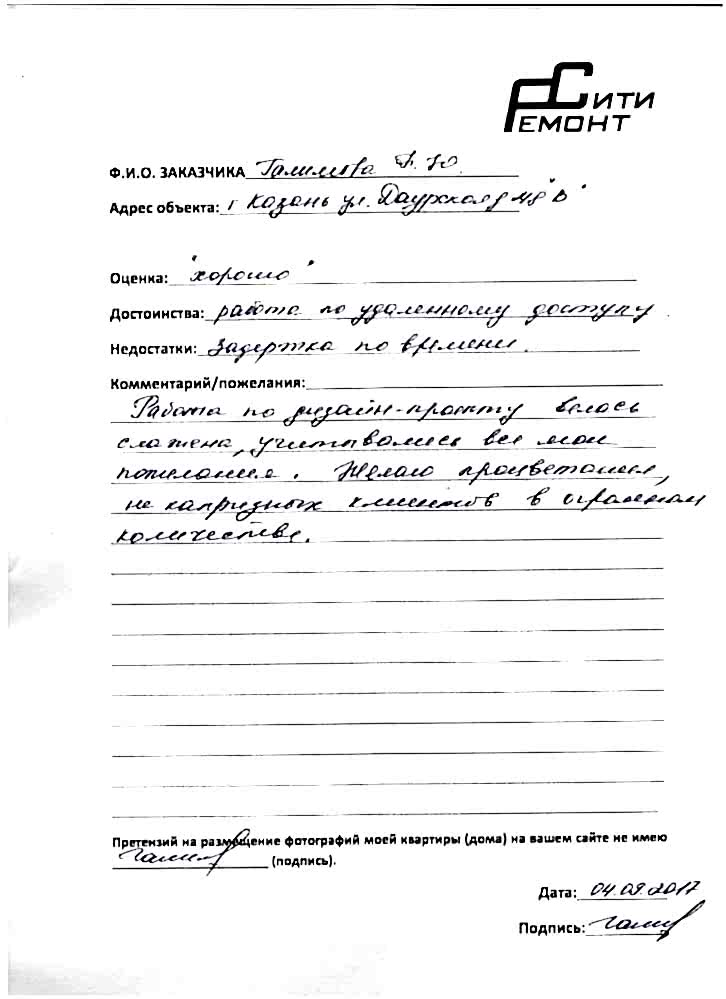 СИТИ
РЕМОНТ
Ф.И.О. ЗАКАЗЧИКА
Адрес объекта: г Казань ул. Даурская
Оценка: "хорошо"
Достоинства: работа по удаленному доступу.
Недостатки: Задертка по времени.
Комментарий/пожелания:
Работа по дизайн-проэкту велась
слажена, учитывались все мои
пожелания. Желаю процветания,
не капризных клиентов в огромном
количестве.
Претензий на размещение фотографий моей квартиры (дома) на вашем сайте не имею
(подпись).
Дата: 04.09.2017
Подпись: